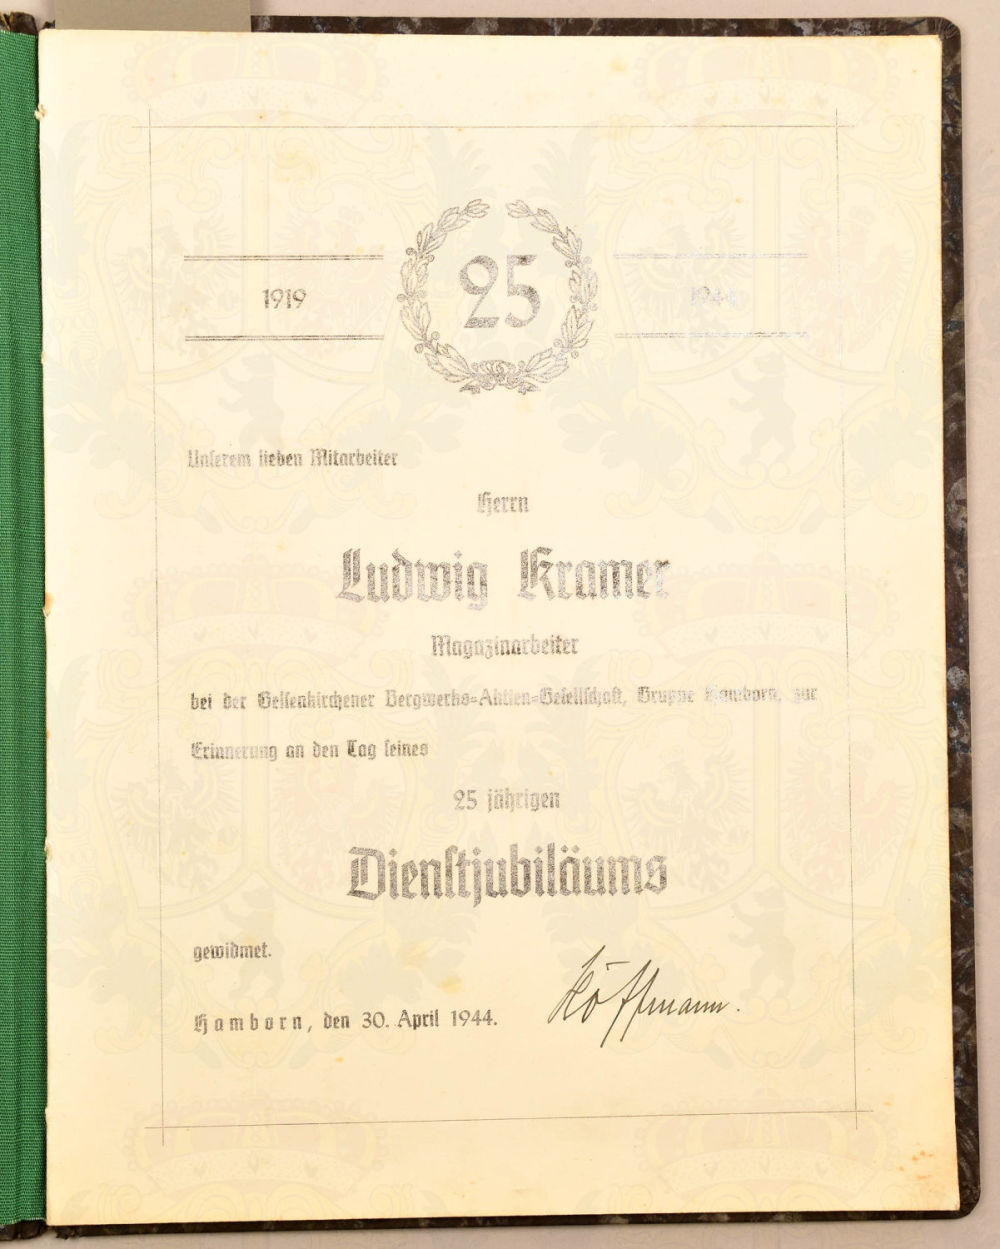 1919
25
1944
Unserem lieben Mitarbeiter
Herrn
Ludwig Kramer
Magazinarbeiter
bei der Gelsenkirchener Bergwerks-Aktien-Gesellschaft, Gruppe Hamborn, zur
Erinnerung an den Tag seines
25 jährigen
Dienstjubiläums
gewidmet.
Hamborn, den 30. April 1944.